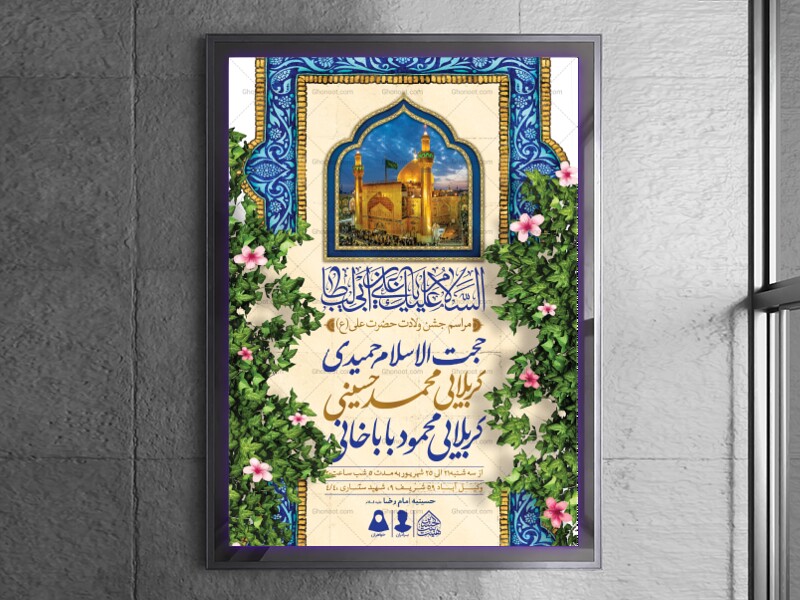 السلام علیک یا علی بن ابی طالب
مراسم جشن ولادت حضرت علی(ع)
حجت الاسلام حمیدی
کربلایی محمد حسینی
کربلایی محمود باباخانی
از سه شنبه ۲۱ الی ۲۵ شهریور به مدت ۵ شب ساعت
وکیل آباد ۵۹ شریف ۹، شهید ستاری ۴/۴۰
حسینیه امام رضا
برادران
خواهران
Ghonoot.com